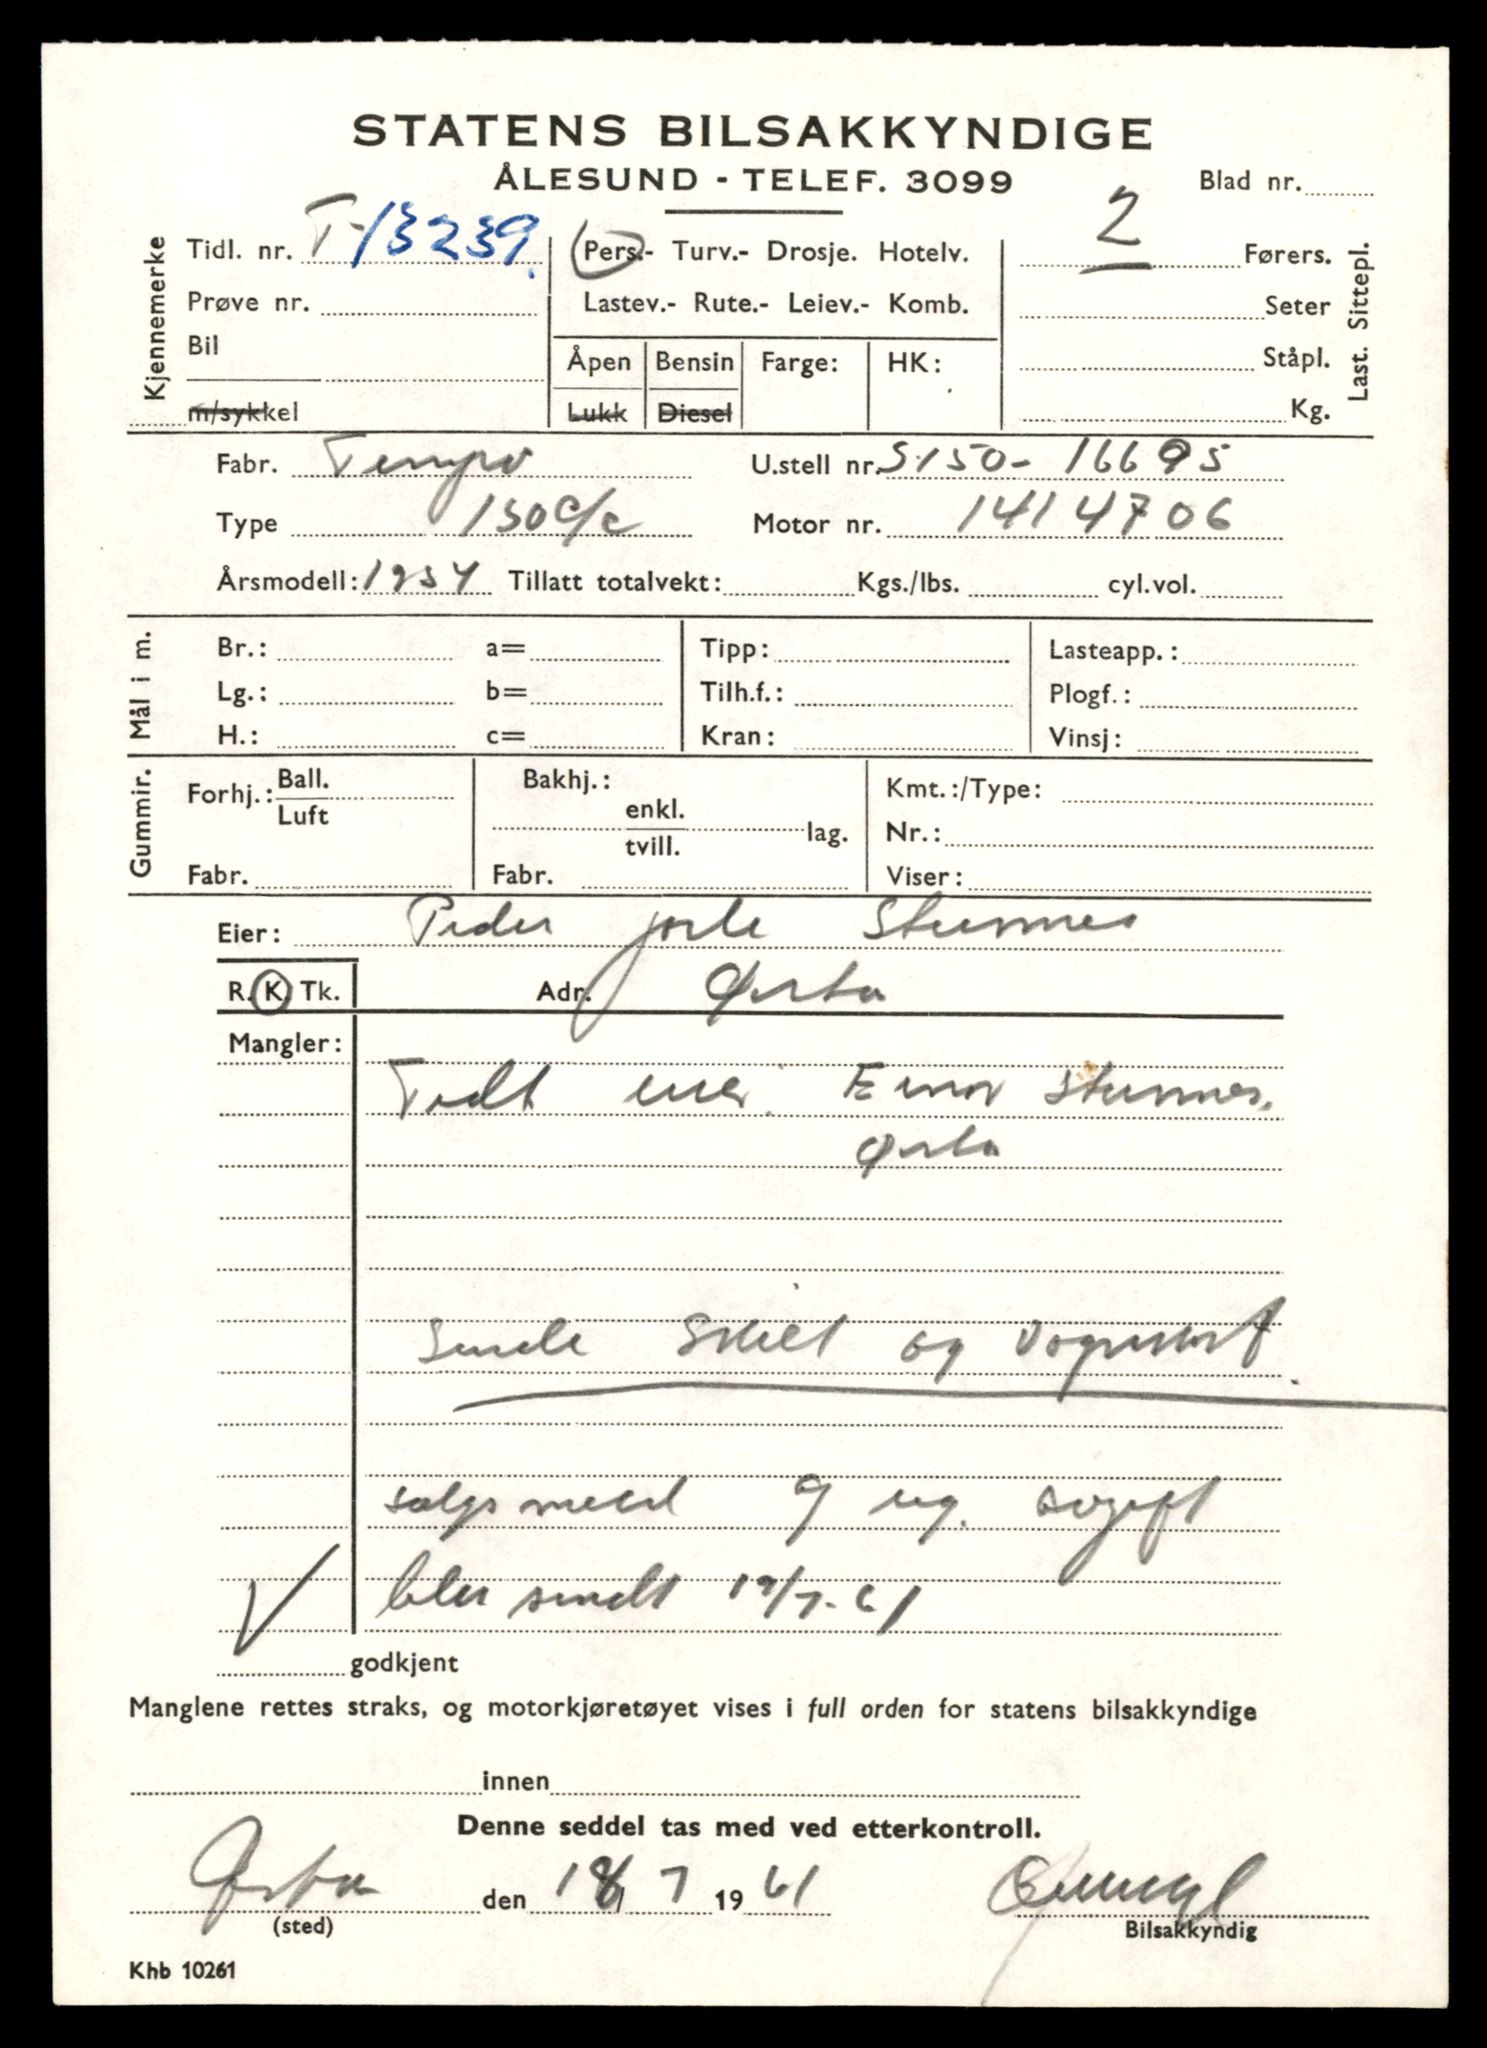 STATENS BILSAKKYNDIGE
ÅLESUND - TELEF. 3099
Blad nr.
Kjennemerke
Tidl. nr. T-13239.
Prøve nr.
Bil
m/sykkel
Pers.- Turv.- Drosje. Hotelv.
Lastev.- Rute.- Leiev.- Komb.
Åpen Bensin Farge: HK:
Lukk Diesel
2 Førers.
Seter
Ståpl.
Kg.
Last. Sittepl.
Fabr. Tempo U.stell nr. S150-16695
Type 150 c/c Motor nr. 1414706
Årsmodell: 1954 Tillatt totalvekt: Kgs./lbs. cyl.vol.
Mål i m.
Br.: a= Tipp: Lasteapp.:
Lg.: b= Tilh.f.: Plogf.:
H.: c= Kran: Vinsj:
Gummir.
Forhj.: Ball. Luft
Fabr.
Bakhj.:
enkl. tvill. lag.
Fabr.
Kmt.:/Type:
Nr.:
Viser:
Eier: Peder Jarle
R. K. Tk. Adr. Ørsta
Mangler:
Tidl eier:
Ørsta
Sende Skilt og Vognkort.
salgsmeld og
blir sendt 19/7-61
godkjent
Manglene rettes straks, og motorkjøretøyet vises i full orden for statens bilsakkyndige
innen
Denne seddel tas med ved etterkontroll.
Ørsta den 18/7 1961
(sted)
Bilsakkyndig
Khb 10261